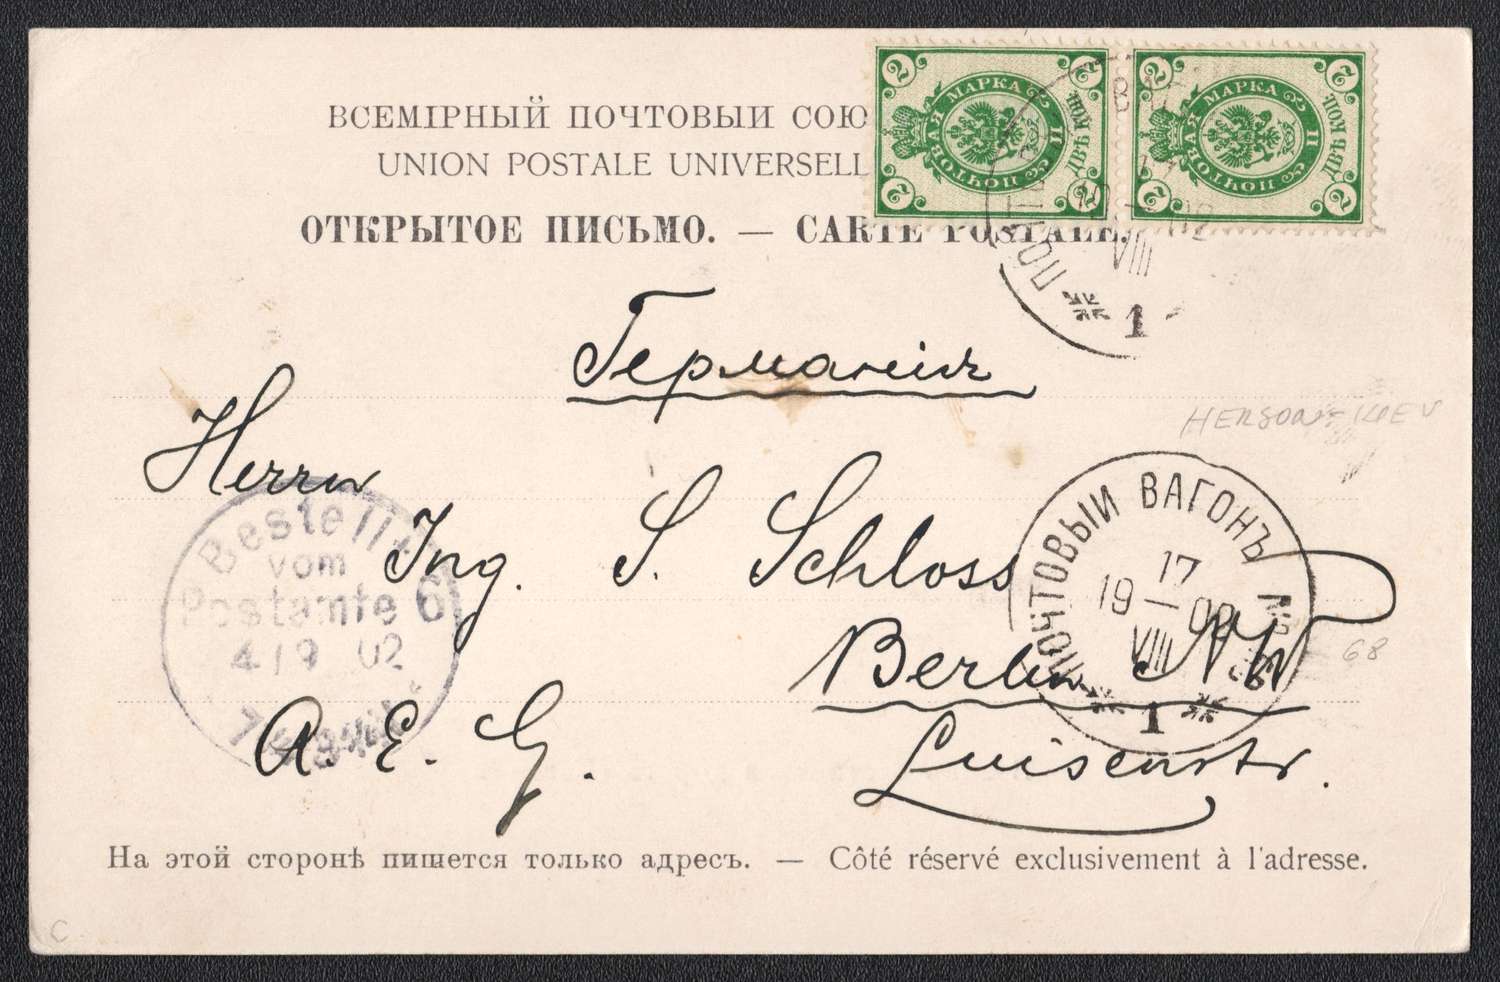 ВСЕМІРНЫЙ ПОЧТОВЫЙ СОЮ
UNION POSTALE UNIVERSELL
ОТКРЫТОЕ ПИСЬМО. — CARTE POSTALE.
2 МАРКА ПОЧТОВАЯ 2 ДВѢ КОП. 2 2
2 МАРКА ПОЧТОВАЯ 2 ДВѢ КОП. 2 2
VIII
1
Германія
HERSON - KIEV
Herrn
Ing. S. Schloss
Berlin NW
Luisenstr.
A. E. G.
Bestellt
vom
Postamte 6
4/9 02
7
ПОЧТОВЫЙ ВАГОНЪ №
17
19 — 02
VIII
1
68
На этой сторонѣ пишется только адресъ. — Côté réservé exclusivement à l'adresse.
C